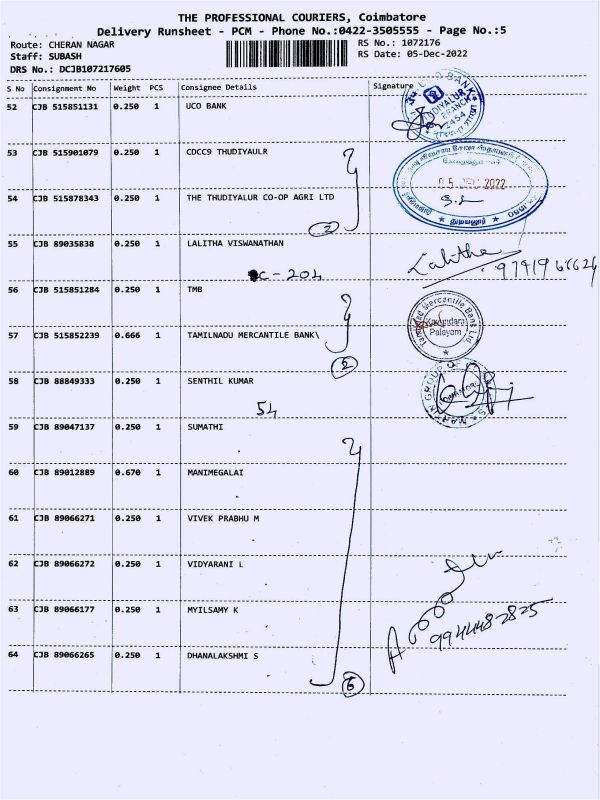 THE PROFESSIONAL COURIERS, Coimbatore
Delivery Runsheet - PCM - Phone No.:0422-3505555 - Page No.:5
Route: CHERAN NAGAR RS No.: 1072176
Staff: SUBASH RS Date: 05-Dec-2022
DRS No.: DCJB107217605
S No Consignment No Weight PCS Consignee Details Signature
52 CJB 515851131 0.250 1 UCO BANK
UCO BANK
BRANCH
53 CJB 515901079 0.250 1 CDCC9 THUDIYAULR
05 DEC 2022
54 CJB 515878343 0.250 1 THE THUDIYALUR CO-OP AGRI LTD
துடியலூர்
2
55 CJB 89035838 0.250 1 LALITHA VISWANATHAN
Lalitha
C-204
56 CJB 515851284 0.250 1 TMB
Tamilnad Mercantile Bank Ltd
Palayam
57 CJB 515852239 0.666 1 TAMILNADU MERCANTILE BANK\
2
58 CJB 88849333 0.250 1 SENTHIL KUMAR
MARTIN GROUP OF
54
59 CJB 89047137 0.250 1 SUMATHI
60 CJB 89012889 0.670 1 MANIMEGALAI
61 CJB 89066271 0.250 1 VIVEK PRABHU M
62 CJB 89066272 0.250 1 VIDYARANI L
63 CJB 89066177 0.250 1 MYILSAMY K
9944482825
64 CJB 89066265 0.250 1 DHANALAKSHMI S
6